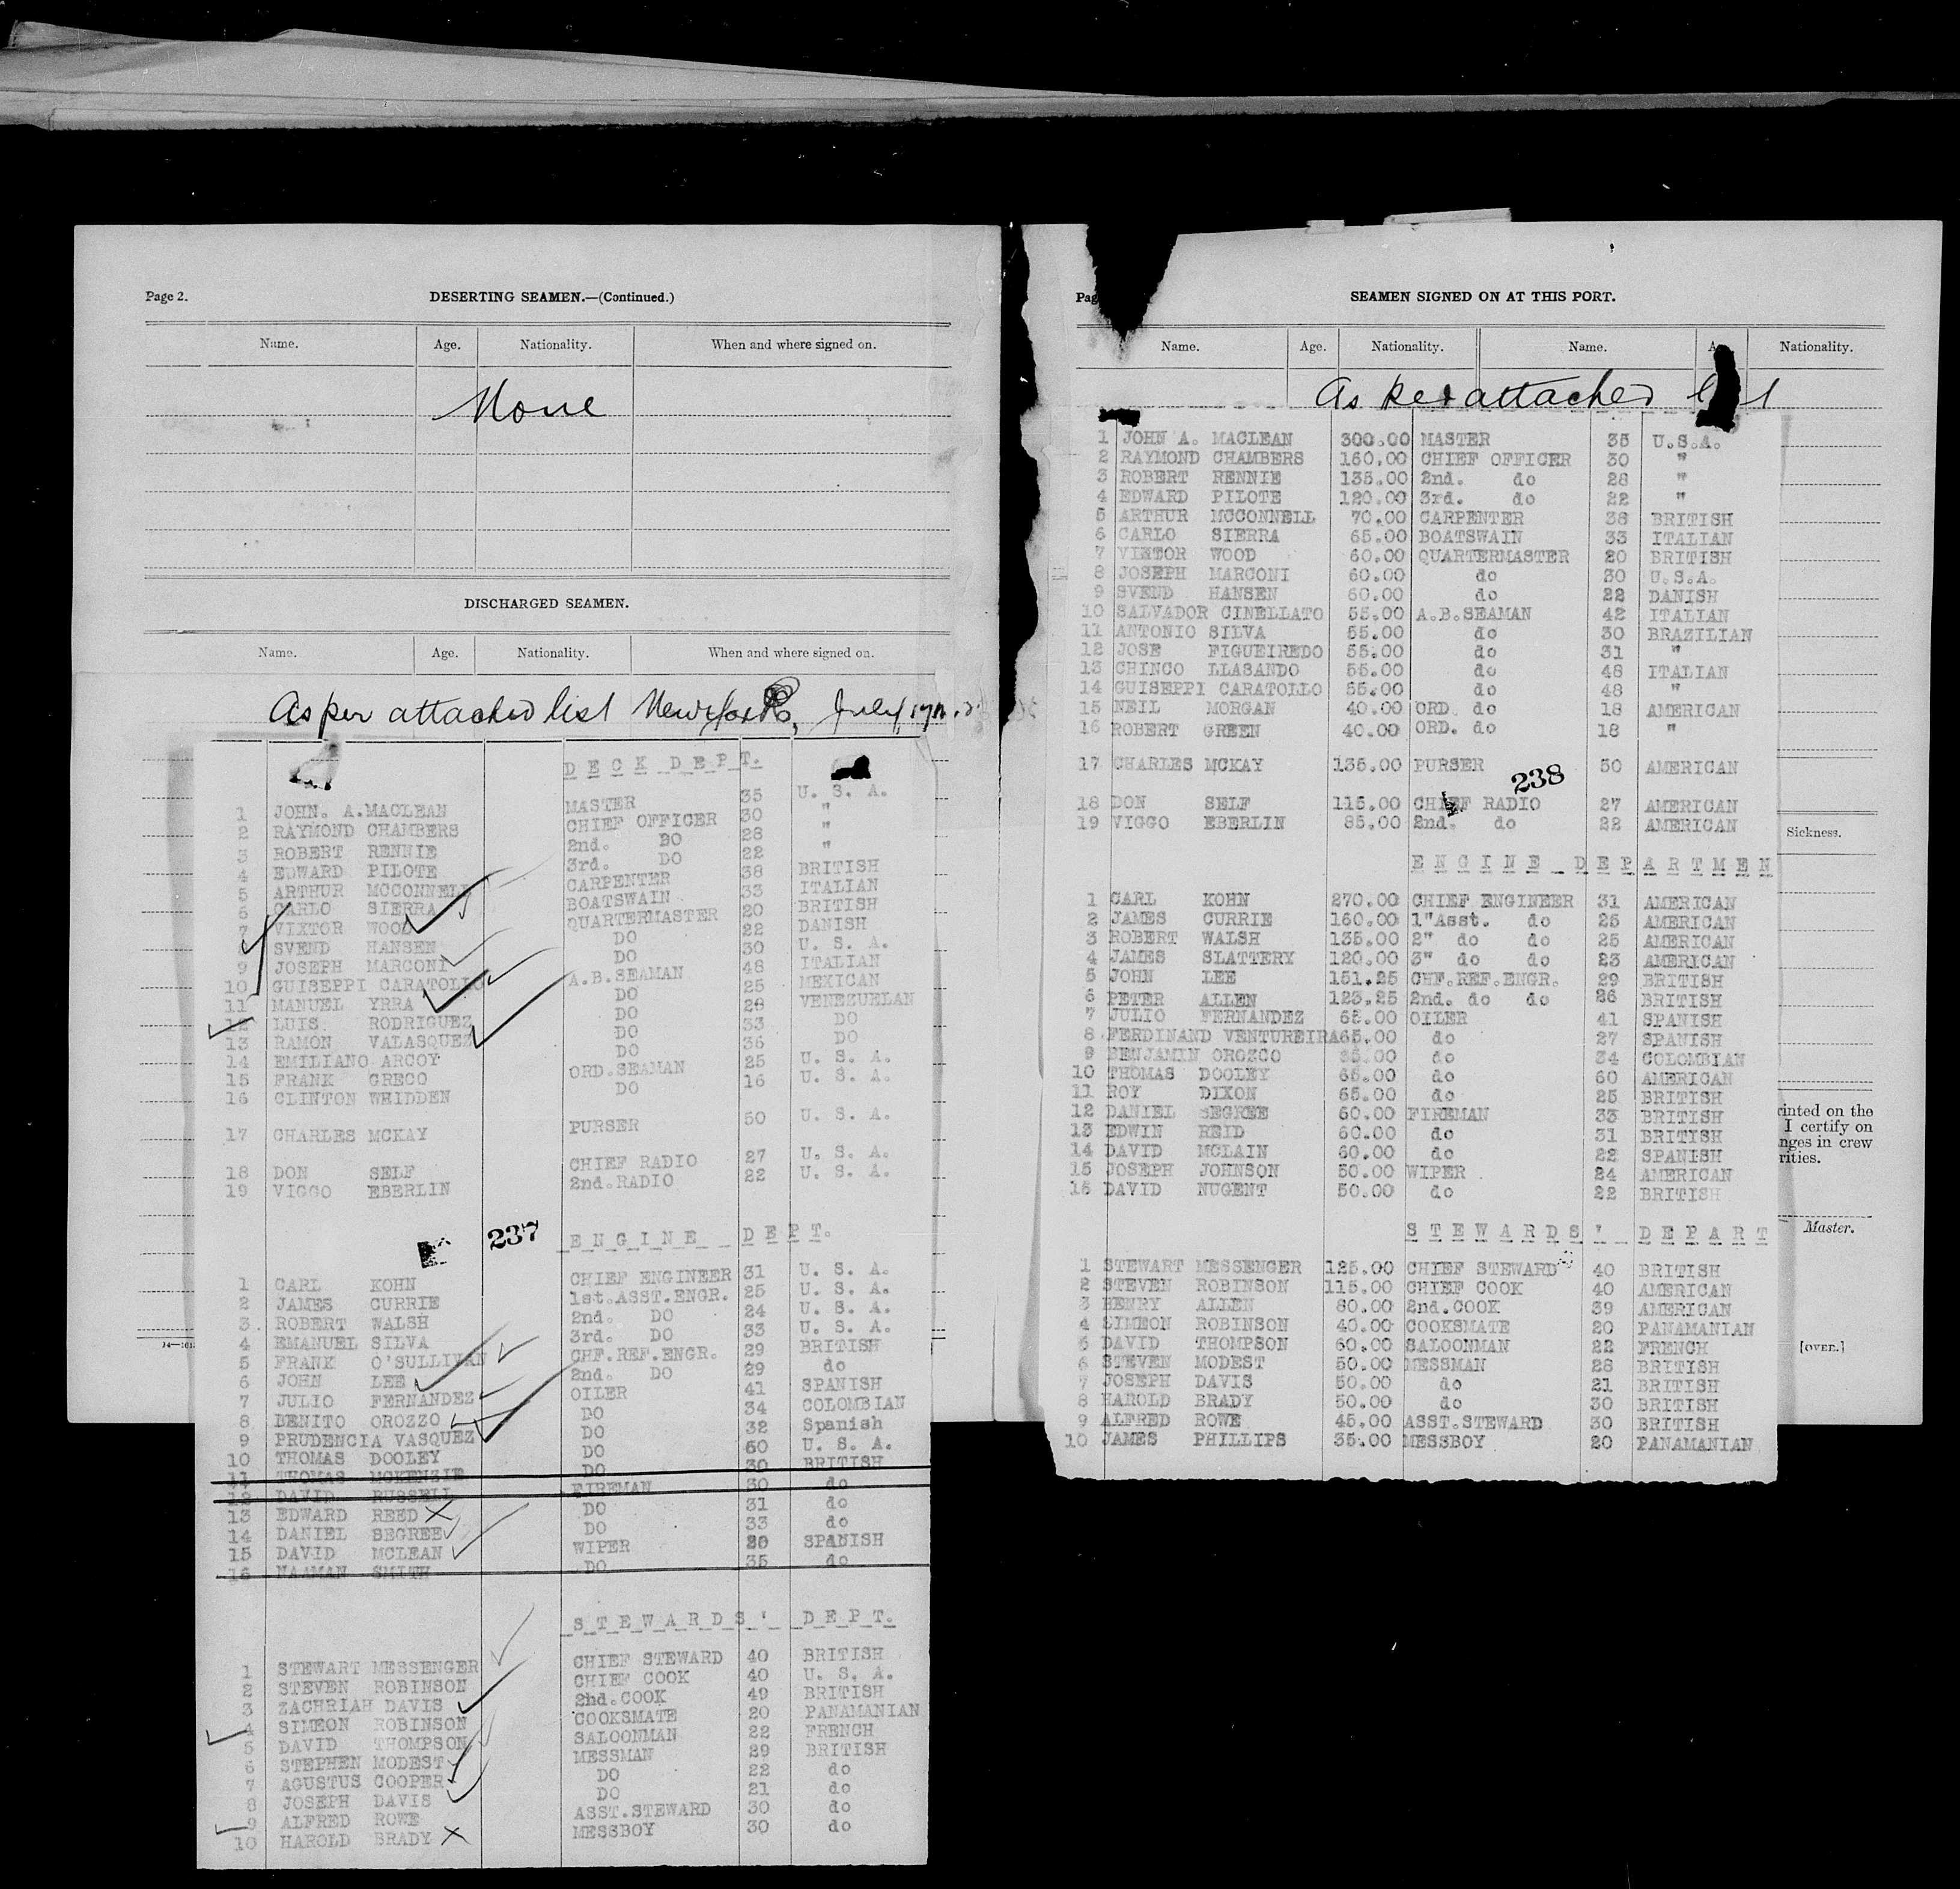 Page 2.
DESERTING SEAMEN.—(Continued.)
Name. Age. Nationality. When and where signed on.
None
DISCHARGED SEAMEN.
Name. Age. Nationality. When and where signed on.
As per attached list New York, July
DECK DEPT.
1 JOHN. A.MACLEAN MASTER 35 U. S. A.
2 RAYMOND CHAMBERS CHIEF OFFICER 30 "
3 ROBERT RENNIE 2nd. DO 28 "
4 EDWARD PILOTE 3rd. DO 22 "
5 ARTHUR MCCONNELL CARPENTER 38 BRITISH
6 CARLO SIERRA BOATSWAIN 33 ITALIAN
7 VIXTOR WOOD QUARTERMASTER 20 BRITISH
8 SVEND HANSEN DO 22 DANISH
9 JOSEPH MARCONI DO 30 U. S. A.
10 GUISEPPI CARATOLLO A.B.SEAMAN 48 ITALIAN
11 MANUEL YRRA DO 25 MEXICAN
12 LUIS RODRIGUEZ DO 28 VENEZUELAN
13 RAMON VALASQUEZ DO 33 DO
14 EMILIANO ARCOY DO 36 DO
15 FRANK GRECO ORD.SEAMAN 25 U. S. A.
16 CLINTON WHIDDEN DO 16 U. S. A.
17 CHARLES MCKAY PURSER 50 U. S. A.
18 DON SELF CHIEF RADIO 27 U. S. A.
19 VIGGO EBERLIN 2nd.RADIO 22 U. S. A.
237
ENGINE DEPT.
1 CARL KOHN CHIEF ENGINEER 31 U. S. A.
2 JAMES CURRIE 1st.ASST.ENGR. 25 U. S. A.
3 ROBERT WALSH 2nd. DO 24 U. S. A.
4 EMANUEL SILVA 3rd. DO 33 U. S. A.
5 FRANK O'SULLIVAN CHF.REF.ENGR. 29 BRITISH
6 JOHN LEE 2nd. DO 29 do
7 JULIO FERNANDEZ OILER 41 SPANISH
8 BENITO OROZZO DO 34 COLOMBIAN
9 PRUDENCIA VASQUEZ DO 32 Spanish
10 THOMAS DOOLEY DO 60 U. S. A.
11 THOMAS MCKENZIE DO 30 BRITISH
12 DAVID RUSSELL FIREMAN 30 do
13 EDWARD REED DO 31 do
14 DANIEL SEGREE DO 33 do
15 DAVID MCLEAN WIPER SPANISH
16 NAAMAN SMITH DO 35 do
STEWARDS' DEPT.
1 STEWART MESSENGER CHIEF STEWARD 40 BRITISH
2 STEVEN ROBINSON CHIEF COOK 40 U. S. A.
3 ZACHRIAH DAVIS 2nd.COOK 49 BRITISH
4 SIMEON ROBINSON COOKSMATE 20 PANAMANIAN
5 DAVID THOMPSON SALOONMAN 22 FRENCH
6 STEPHEN MODEST MESSMAN 29 BRITISH
7 AGUSTUS COOPER DO 22 do
8 JOSEPH DAVIS DO 21 do
9 ALFRED ROWE ASST.STEWARD 30 do
10 HAROLD BRADY MESSBOY 30 do
SEAMEN SIGNED ON AT THIS PORT.
Name. Age. Nationality. Name. Nationality.
As per attached
1 JOHN A. MACLEAN 300.00 MASTER 35 U.S.A.
2 RAYMOND CHAMBERS 160.00 CHIEF OFFICER 30 "
3 ROBERT RENNIE 135.00 2nd. do 28 "
4 EDWARD PILOTE 120.00 3rd. do 22 "
5 ARTHUR MCCONNELL 70.00 CARPENTER 38 BRITISH
6 CARLO SIERRA 65.00 BOATSWAIN 33 ITALIAN
7 VIXTOR WOOD 60.00 QUARTERMASTER 20 BRITISH
8 JOSEPH MARCONI 60.00 do 30 U.S.A.
9 SVEND HANSEN 60.00 do 22 DANISH
10 SALVADOR CINELLATO 55.00 A.B.SEAMAN 42 ITALIAN
11 ANTONIO SILVA 55.00 do 30 BRAZILIAN
12 JOSE FIGUEIREDO 55.00 do 31 "
13 CHINCO LLASANDO 55.00 do 48 ITALIAN
14 GUISEPPI CARATOLLO 55.00 do 48 "
15 NEIL MORGAN 40.00 ORD. do 18 AMERICAN
16 ROBERT GREEN 40.00 ORD. do 18 "
17 CHARLES MCKAY 135.00 PURSER 50 AMERICAN
238
18 DON SELF 115.00 CHIEF RADIO 27 AMERICAN
19 VIGGO EBERLIN 85.00 2nd. do 22 AMERICAN
Sickness.
ENGINE DEPARTMEN
1 CARL KOHN 270.00 CHIEF ENGINEER 31 AMERICAN
2 JAMES CURRIE 160.00 1"Asst. do 25 AMERICAN
3 ROBERT WALSH 135.00 2" do do 25 AMERICAN
4 JAMES SLATTERY 120.00 3" do do 23 AMERICAN
5 JOHN LEE 151.25 CHF.REF.ENGR. 29 BRITISH
6 PETER ALLEN 123.25 2nd. do do 26 BRITISH
7 JULIO FERNANDEZ 65.00 OILER 41 SPANISH
8 FERDINAND VENTUREIRA65.00 do 27 SPANISH
9 BENJAMIN OROZCO 65.00 do 34 COLOMBIAN
10 THOMAS DOOLEY 65.00 do 60 AMERICAN
11 ROY DIXON 65.00 do 25 BRITISH
12 DANIEL SEGREE 60.00 FIREMAN 33 BRITISH
13 EDWIN REID 60.00 do 31 BRITISH
14 DAVID MCLAIN 60.00 do 22 SPANISH
15 JOSEPH JOHNSON 50.00 WIPER 24 AMERICAN
16 DAVID NUGENT 50.00 do 22 BRITISH
rinted on the
I certify on
nges in crew
rities.
Master.
STEWARDS' DEPART
1 STEWART MESSENGER 125.00 CHIEF STEWARD 40 BRITISH
2 STEVEN ROBINSON 115.00 CHIEF COOK 40 AMERICAN
3 HENRY ALLEN 80.00 2nd.COOK 39 AMERICAN
4 SIMEON ROBINSON 40.00 COOKSMATE 20 PANAMANIAN
5 DAVID THOMPSON 60.00 SALOONMAN 22 FRENCH
6 STEVEN MODEST 50.00 MESSMAN 28 BRITISH
7 JOSEPH DAVIS 50.00 do 21 BRITISH
8 HAROLD BRADY 50.00 do 30 BRITISH
9 ALFRED ROWE 45.00 ASST.STEWARD 30 BRITISH
10 JAMES PHILLIPS 35.00 MESSBOY 20 PANAMANIAN
[OVER.]